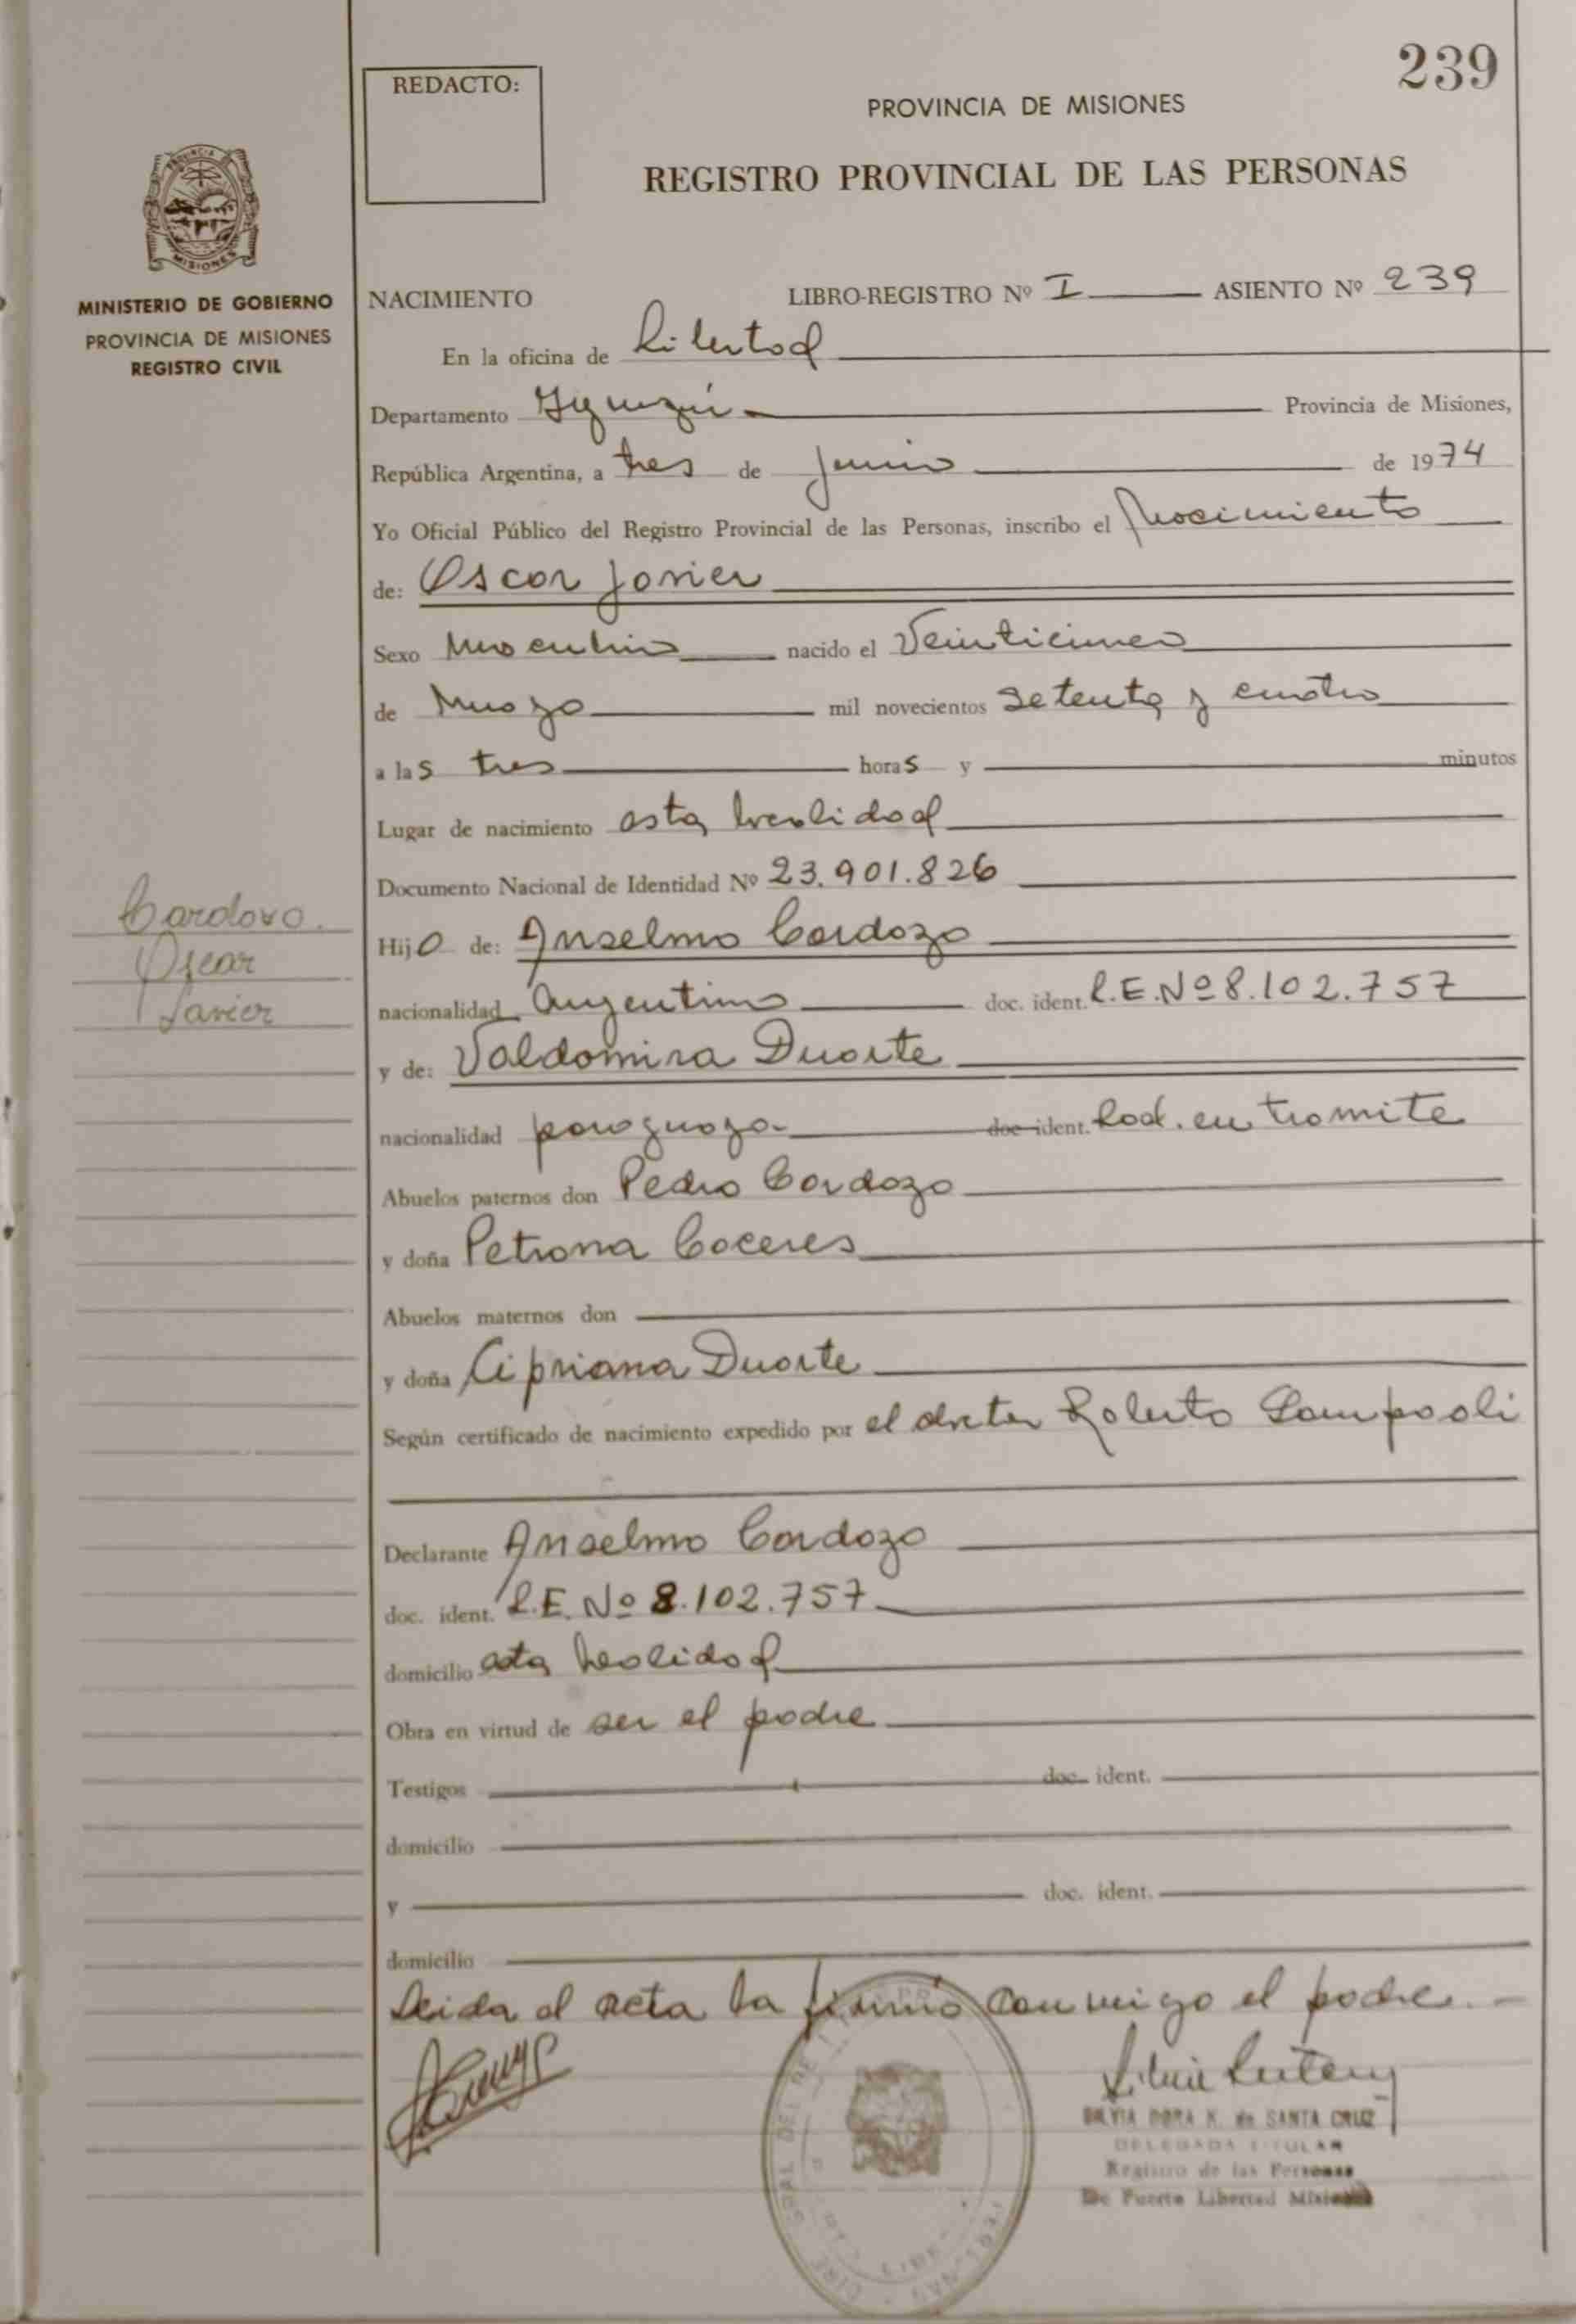 239
REDACTO:
PROVINCIA DE MISIONES
REGISTRO PROVINCIAL DE LAS PERSONAS
PROVINCIA
MISIONES
MINISTERIO DE GOBIERNO
PROVINCIA DE MISIONES
REGISTRO CIVIL
NACIMIENTO LIBRO-REGISTRO Nº I ASIENTO Nº 239
En la oficina de Libertad
Departamento Iguazú Provincia de Misiones,
República Argentina, a tres de junio de 1974
Yo Oficial Público del Registro Provincial de las Personas, inscribo el Nacimiento
de: Oscar Javier
Sexo Masculino nacido el Veinticinco
de Mayo mil novecientos setenta y cuatro
a las tres horas y minutos
Lugar de nacimiento esta localidad
Documento Nacional de Identidad Nº 23.901.826
Cardozo
Oscar
Javier
Hijo de: Anselmo Cardozo
nacionalidad argentino doc. ident. L.E. Nº 8.102.757
y de: Valdomira Duarte
nacionalidad paraguaya doc ident. Rad. en tramite
Abuelos paternos don Pedro Cardozo
y doña Petrona Coceres
Abuelos maternos don
y doña Cipriana Duarte
Según certificado de nacimiento expedido por el doctor Roberto Sampaoli
Declarante Anselmo Cardozo
doc. ident. L.E. Nº 8.102.757
domicilio esta localidad
Obra en virtud de ser el padre
Testigos doc. ident.
domicilio
y doc. ident.
domicilio
Leida el acta la firmó conmigo el padre.-
SILVIA DORA K. de SANTA CRUZ
DELEGADA TITULAR
Registro de las Personas
De Puerto Libertad Misiones